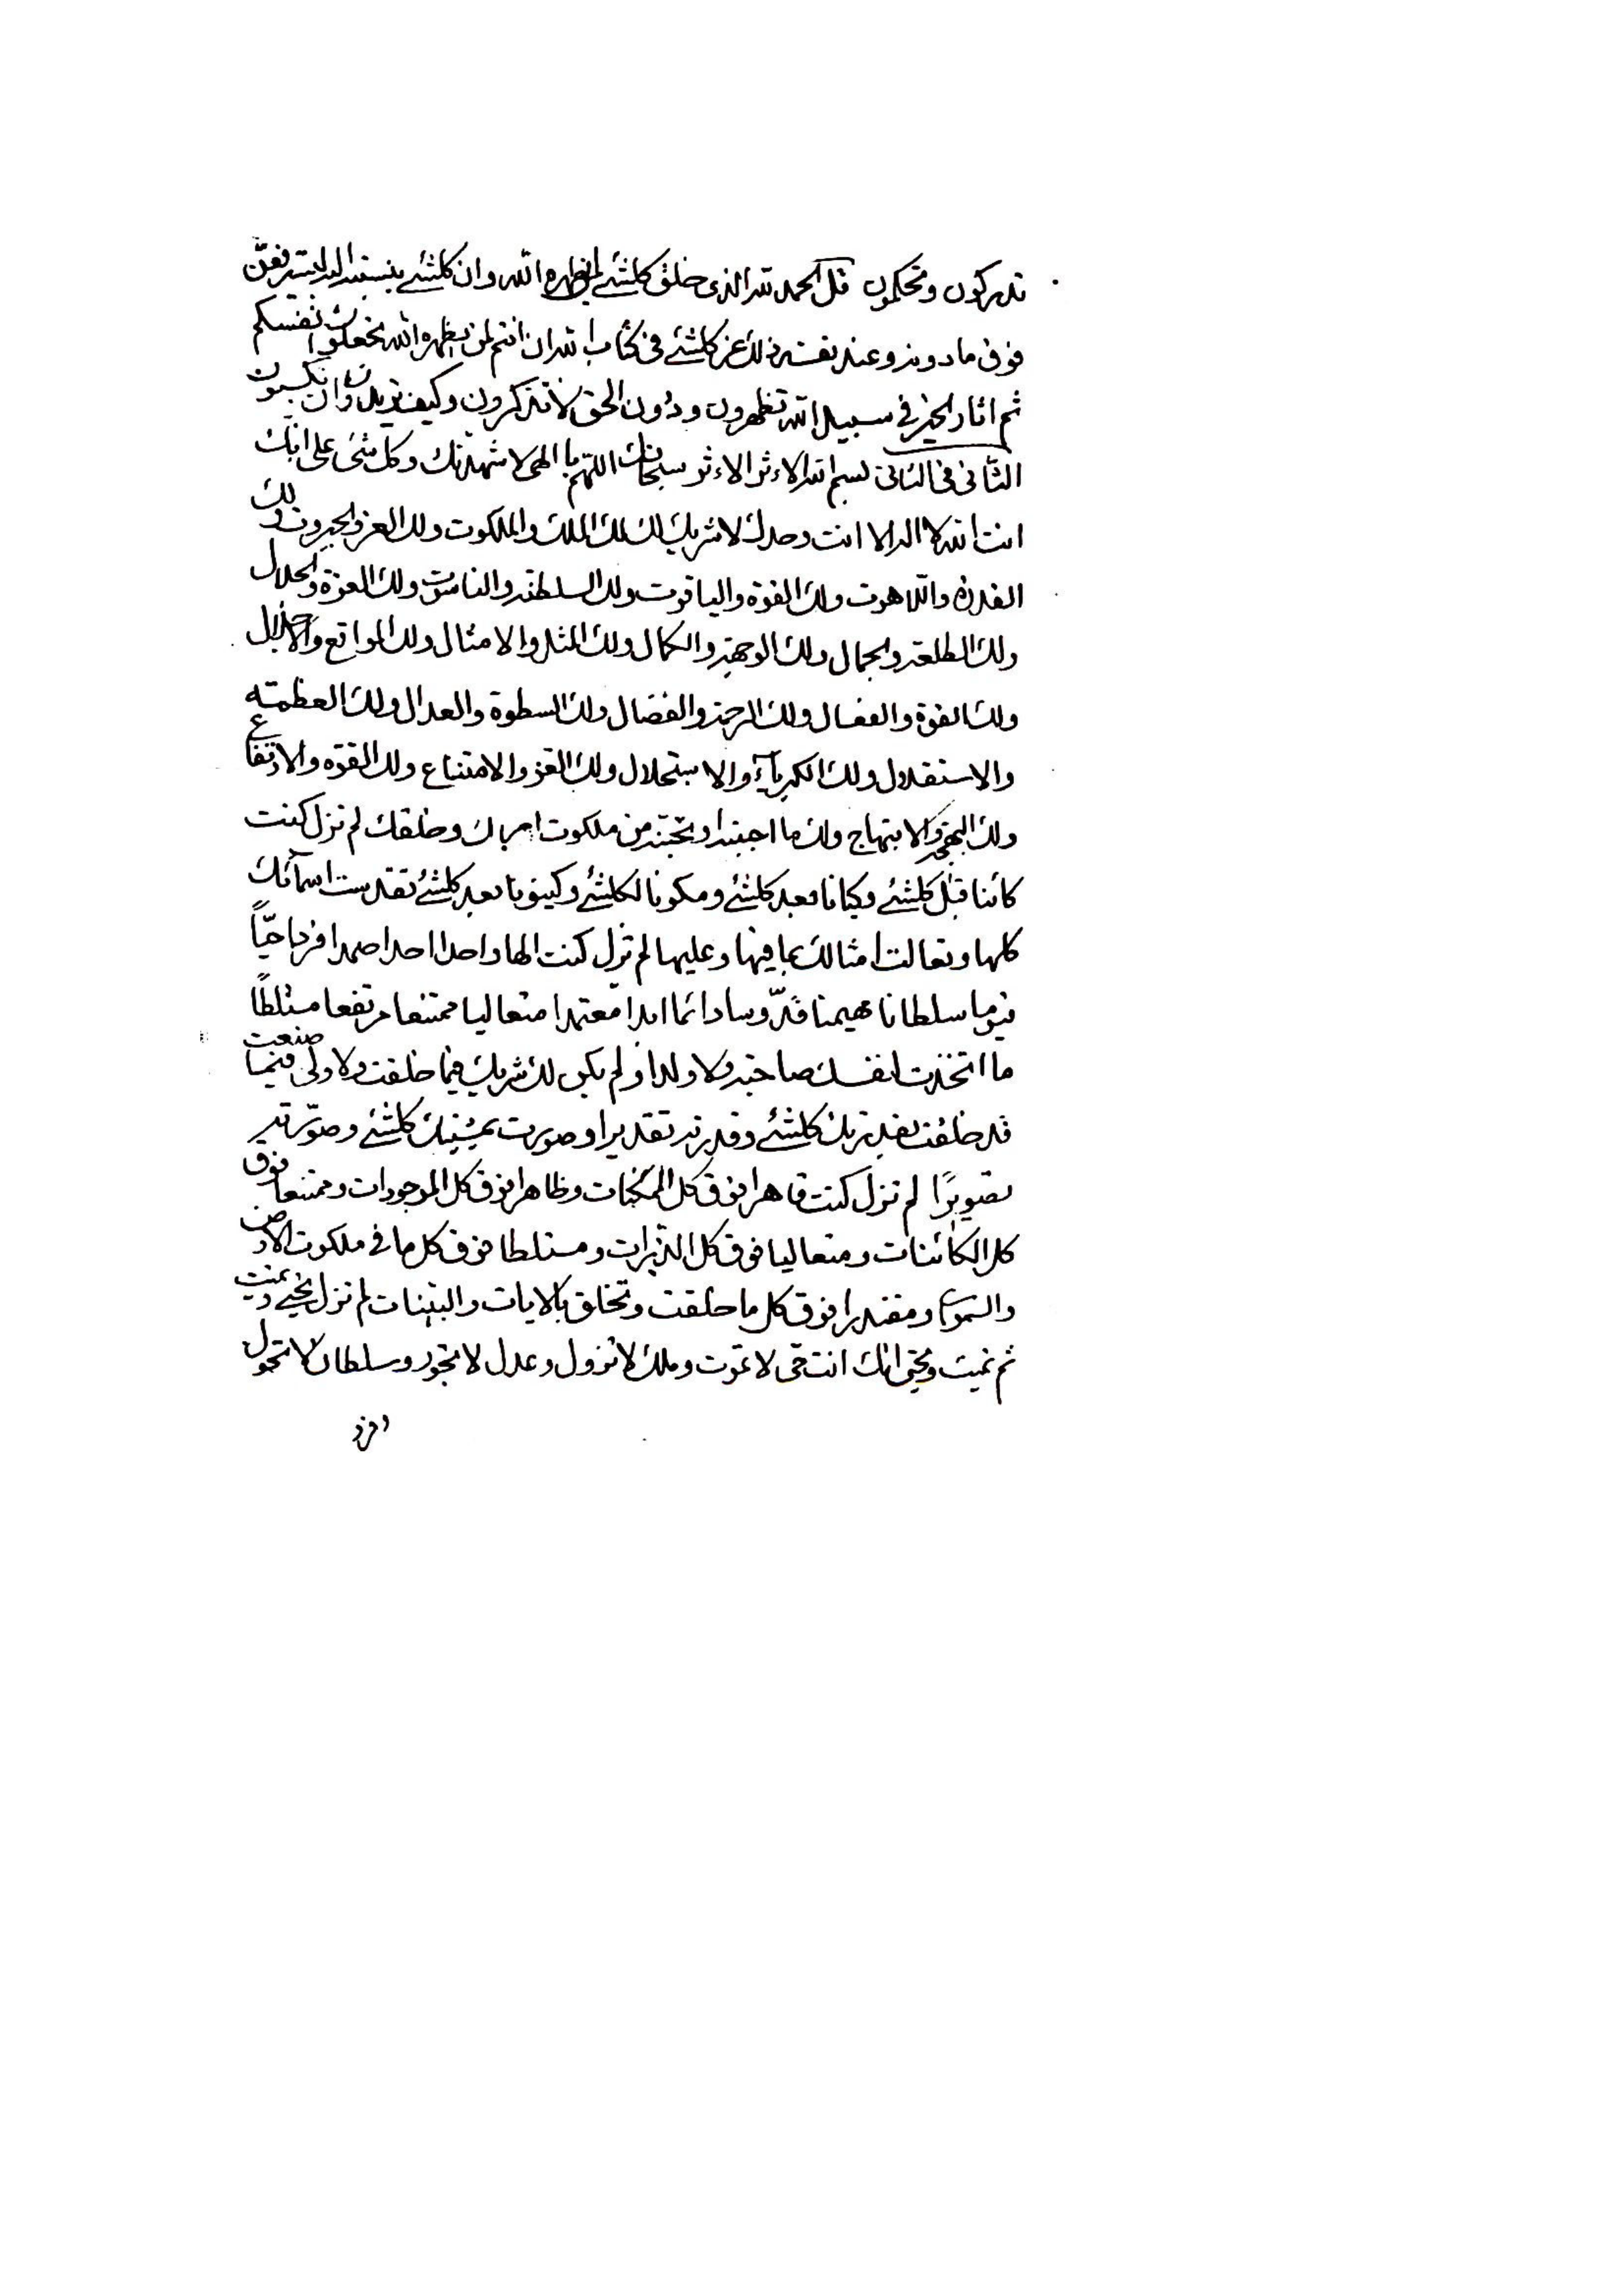 تدركون وتحكمون قل الحمد لله الذى خلق كلشئ لمن يظهره الله وان كلشئ بنسبته اليه ليرتفعن
فوق ما دونه وعند نفسه ذلك عز كلشئ فى كتاب الله ان انتم لمن يظهره الله تجعلون انفسكم
ثم اثار الخير فى سبيل الله تظهرون ودون الحق لا تذكرون وكيف تريدون ان تكسبون
الثانى فى الثانى بسم الله الاءثر الاءثر سبحانك اللهم يا الهى لاشهدنك وكل شئ على انك
انت الله لا اله الا انت وحدك لا شريك لك لك الملك والملكوت ولك العز والجبروت ولك
القدرة واللاهوت ولك القوة والياقوت ولك السلطنة والناسوت ولك العزة والجلال
ولك الطلعة والجمال ولك الوجهة والكمال ولك المثل والامثال ولك المواقع والاجلال
ولك القوة والفعال ولك الرحمة والفضال ولك السطوة والعدال ولك العظمة
والاستقلال ولك الكبرياء والاستجلال ولك العز والامتناع ولك القوة والارتفاع
ولك البهجة والابتهاج ولك ما احببته او تحبنه من ملكوت امرك وخلقك لم تزل كنت
كائنا قبل كلشئ وكيانا بعد كلشئ ومكونا لكلشئ وكينونا بعد كلشئ تقدست اسمآئك
كلها وتعالت امثالك بما فيها وعليها لم تزل كنت الها واحدا احدا صمدا فردا حيّاً
قيوما سلطانا مهيمنا قدّوسا دائما ابدا معتمدا متعاليا ممتنعا مرتفعا متسلطًا
ما اتخذت لنفسك صاحبة ولا ولدا ولم يكن لك شريك فيما خلقت ولا ولى فيما صنعت
قد خلقت بقدرتك كلشئ وقدرته تقديرا وصورت بمشيتك كلشئ وصوّرته
تصويرًا لم تزل كنت قاهرا فوق كل الممكنات وظاهرا فوق كل الموجودات وممتنعا فوق
كل الكائنات ومتعاليا فوق كل الذرات ومتسلطا فوق كل ما فى ملكوت الارض
والسموات ومقتدرا فوق كل ما خلقت وتخلق بالايات والبينات لم تزل تحيى وتميت
ثم تميت وتحيى انك انت حى لا تموت وملك لا تزول وعدل لا تجور وسلطان لا تحول
وفرد